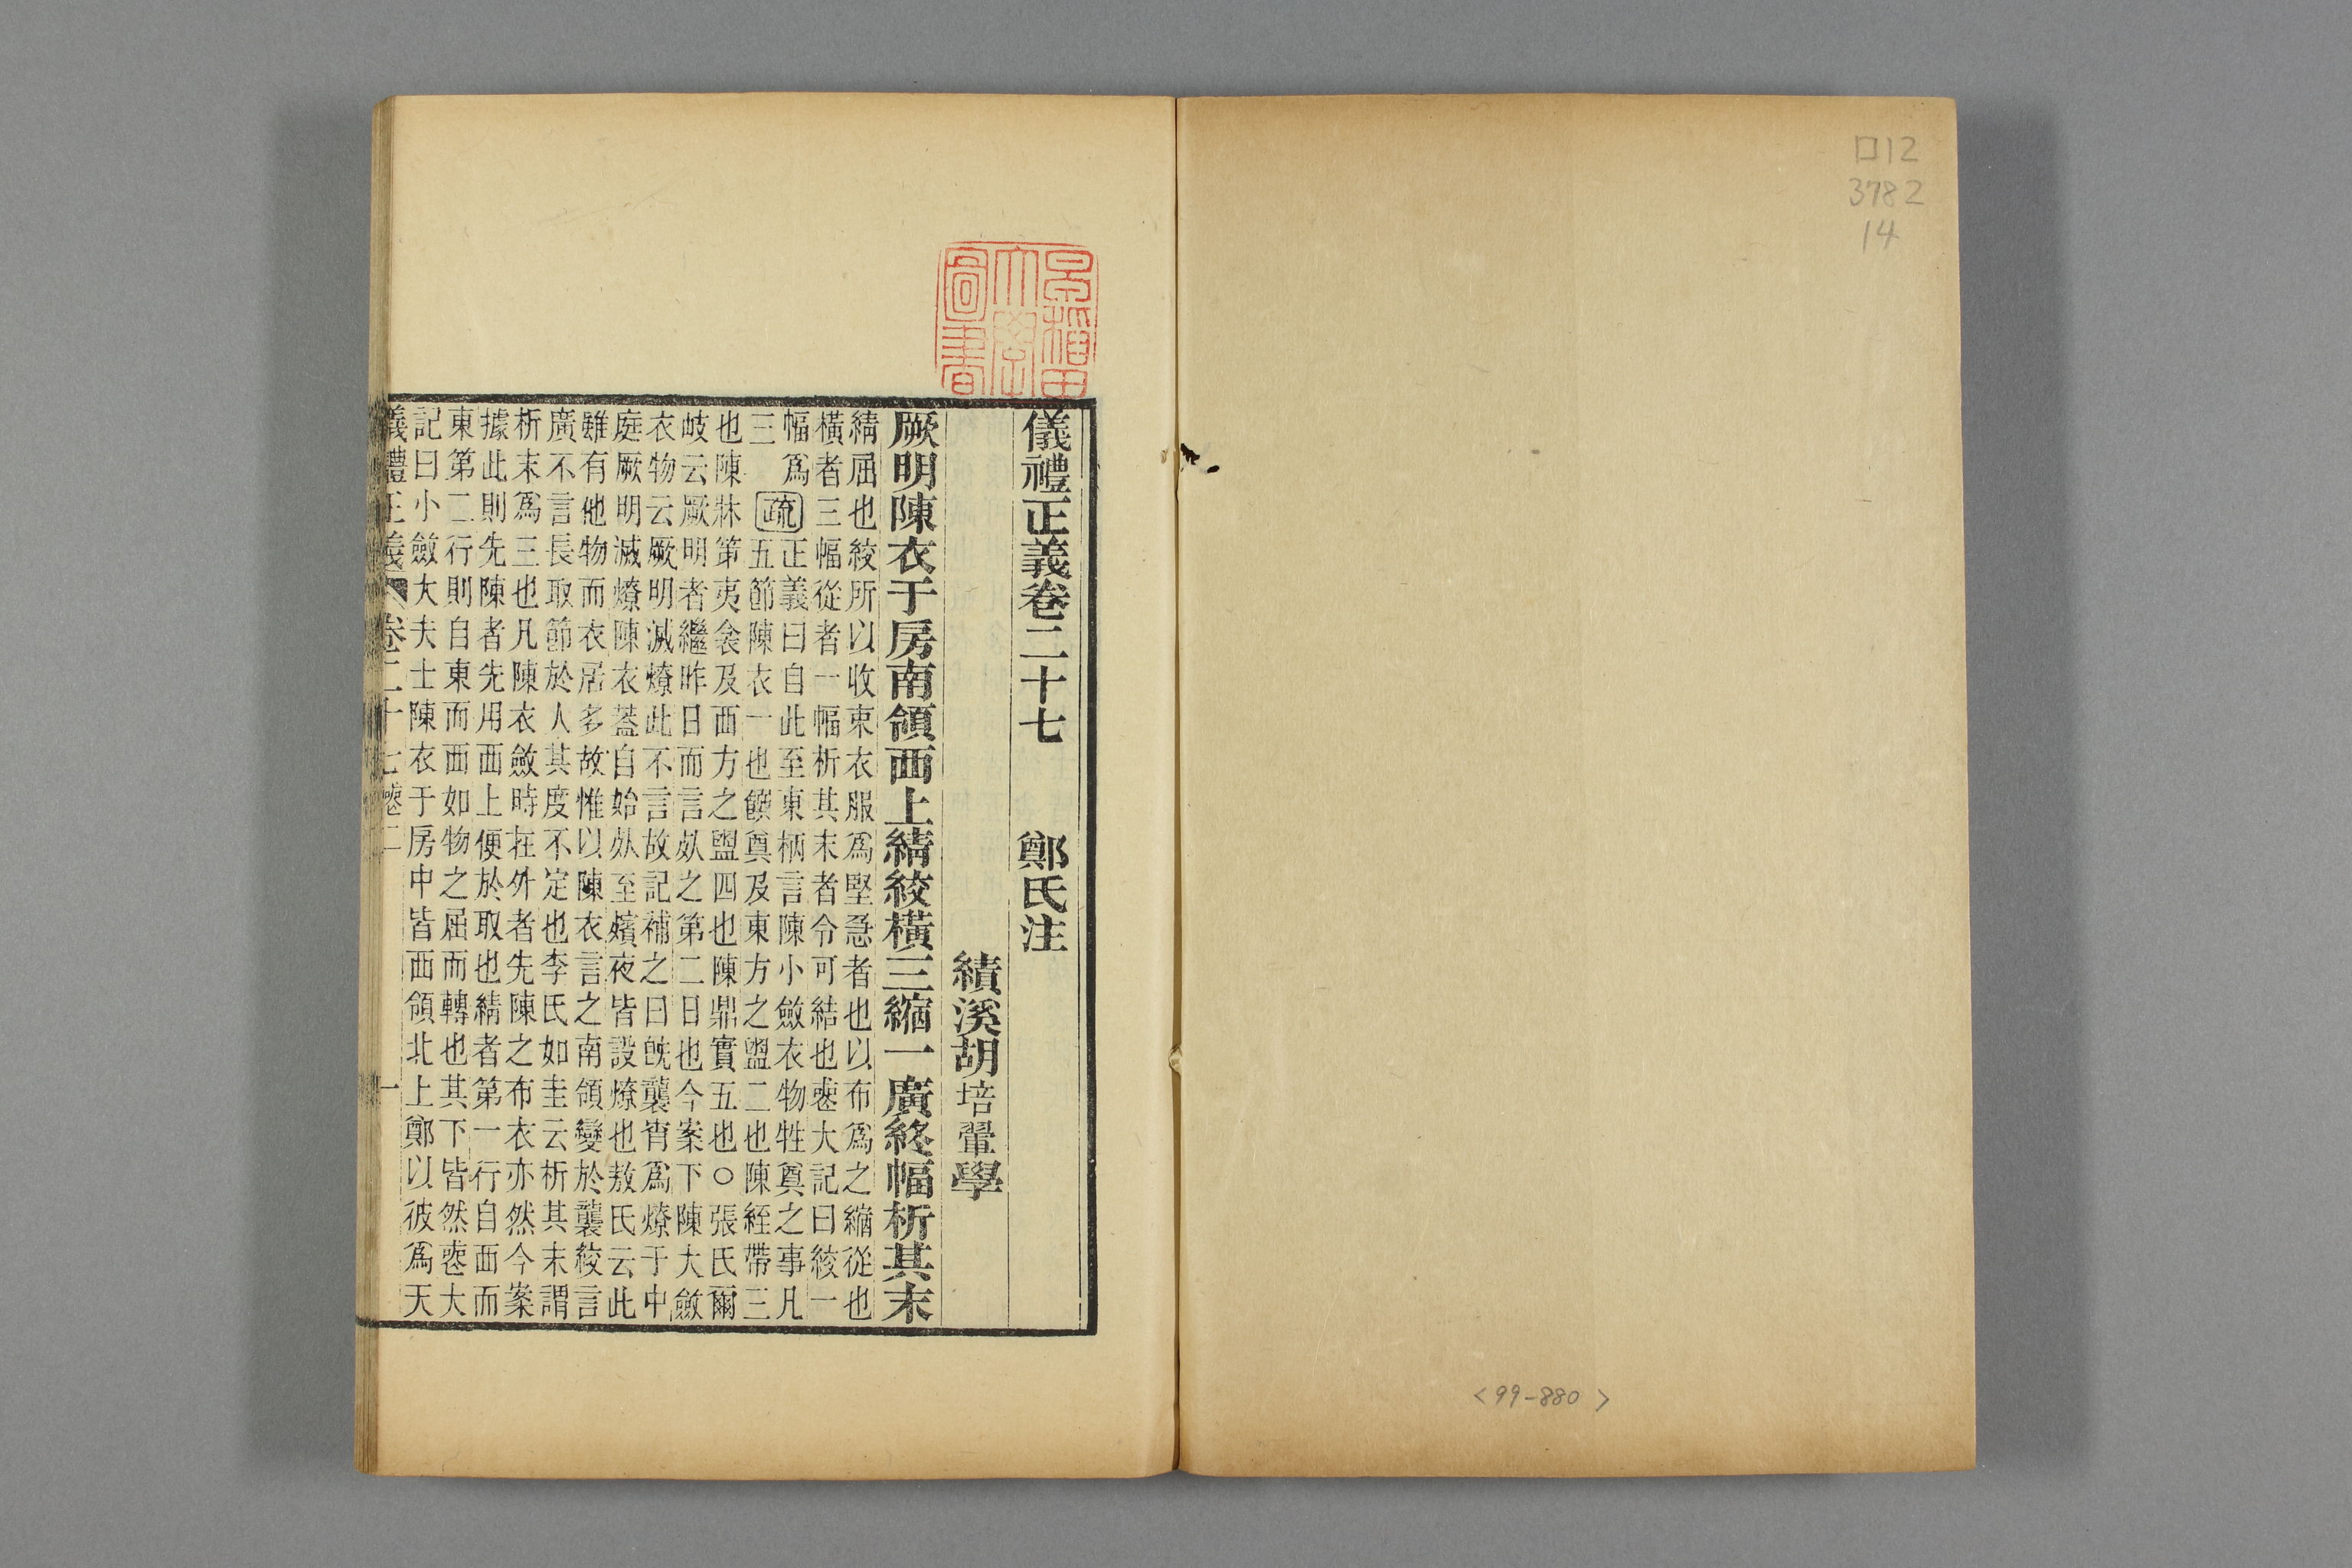 ロ12
3782
14
<99-880>
早稻田
大學
圖書
儀禮正義卷二十七 鄭氏注
績溪胡培翬學
厥明陳衣于房南領西上綪絞橫三縮一廣終幅析其末
綪屈也絞所以收束衣服爲堅急者也以布爲之縮從也
橫者三幅從者一幅析其末者令可結也喪大記曰絞一
幅爲
三
疏
正義曰自此至東柄言陳小斂衣物牲奠之事凡
五節陳衣一也饌奠及東方之盥二也陳絰帶三
也陳牀第夷衾及西方之盥四也陳鼎實五也○張氏爾
岐云厥明者繼昨日而言死之第二日也今案下陳大斂
衣物云厥明滅燎此不言故記補之曰旣襲宵爲燎于中
庭厥明滅燎陳衣蓋自始死至殯夜皆設燎也敖氏云此
雖有他物而衣居多故惟以陳衣言之南領變於襲絞言
廣不言長取節於人其度不定也李氏如圭云析其末謂
析末爲三也凡陳衣斂時在外者先陳之布衣亦然今案
據此則先陳者先用西上便於取也綪者第一行自西而
東第二行則自東而西如物之屈而轉也其下皆然喪大
記曰小斂大夫士陳衣于房中皆西領北上鄭以彼爲天
儀禮正義 卷二十七喪二 一